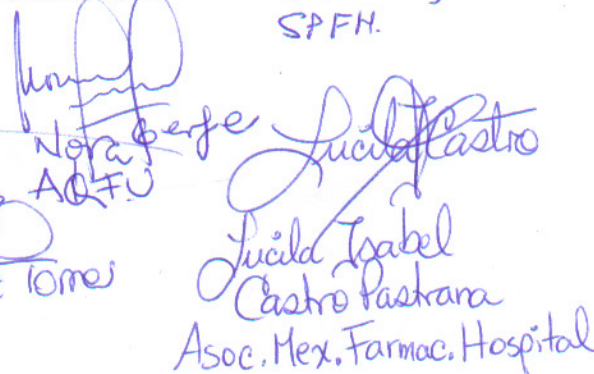 SPFH.
Nora Gerfe
AQFU
Lucila Castro
Lucila Isabel
Castro Pastrana
Asoc. Mex. Farmac. Hospital